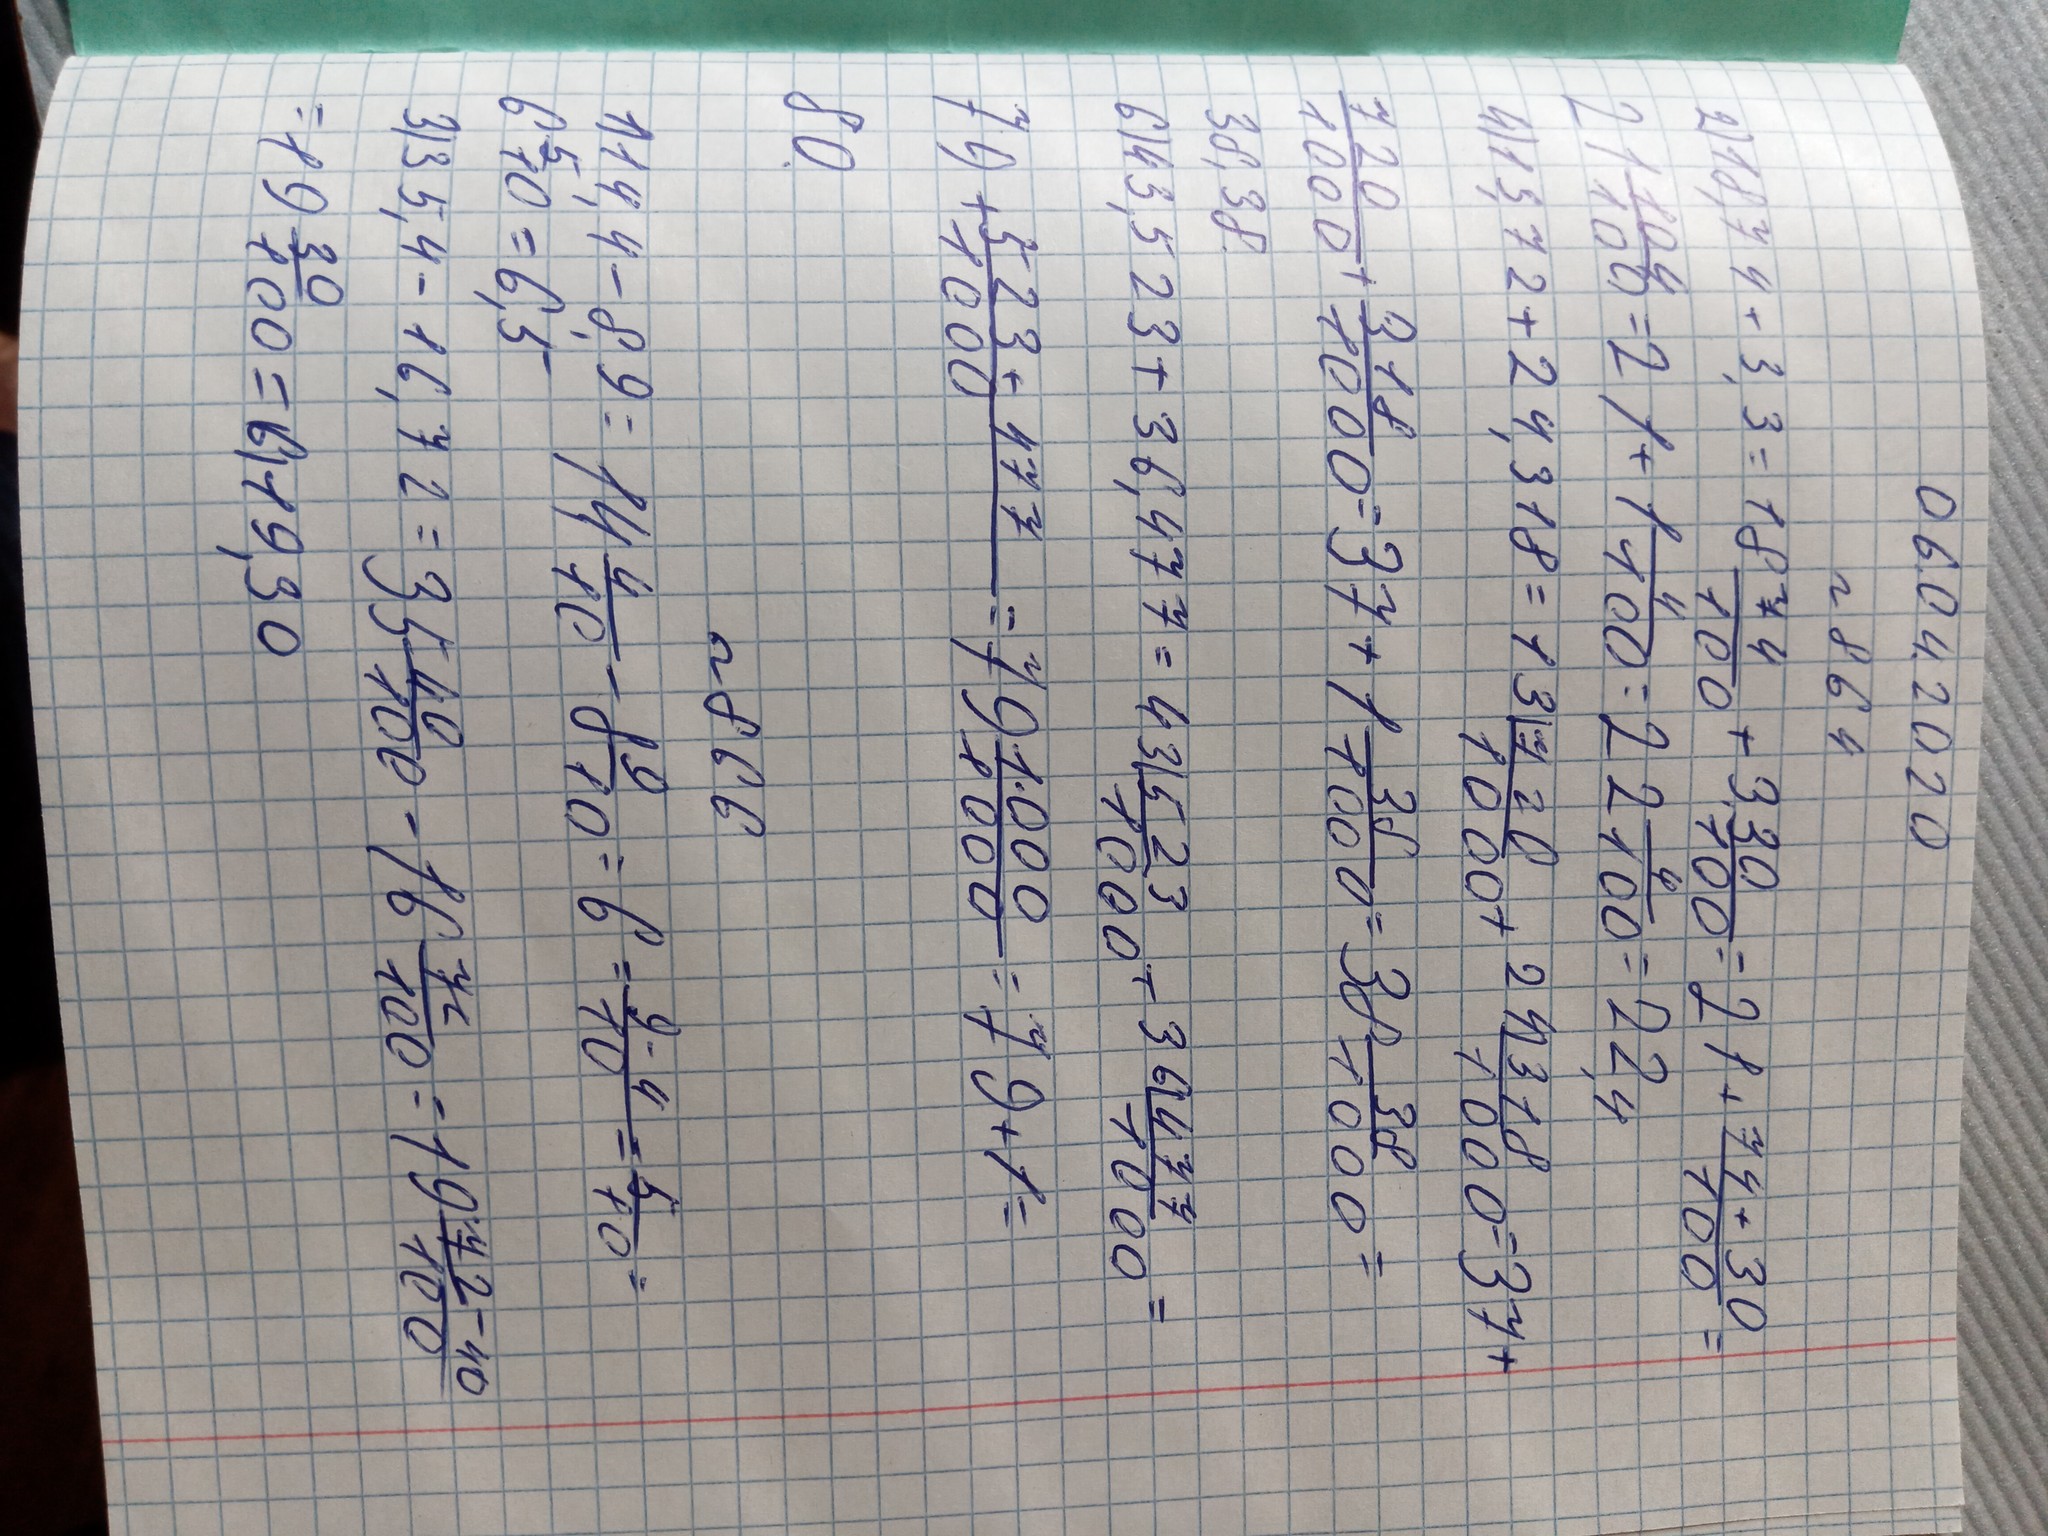 06.04.2020
n 864
2) 18,74 + 3,3 = 18 74/100 + 3 30/100 = 21 + 74+30/100 =
21 104/100 = 21 + 1 4/100 = 22 4/100 = 22,4
4) 13,72 + 24,318 = 13 720/1000 + 24 318/1000 = 37 +
720/1000 + 318/1000 = 37 + 1 38/1000 = 38 38/1000 =
38,38
6) 43,523 + 36,477 = 43 523/1000 + 36 477/1000 =
79 + 523+477/1000 = 79 1.000/1000 = 79 + 1 =
80.
n 866
1) 14,4 - 8,9 = 14 4/10 - 8 9/10 = 6 = 9-4/10 = 5/10 =
6 5/10 = 6,5
3) 35,4 - 16,72 = 35 40/100 - 16 72/100 = 19 72-40/100
= 19 30/100 = 6) 19,30